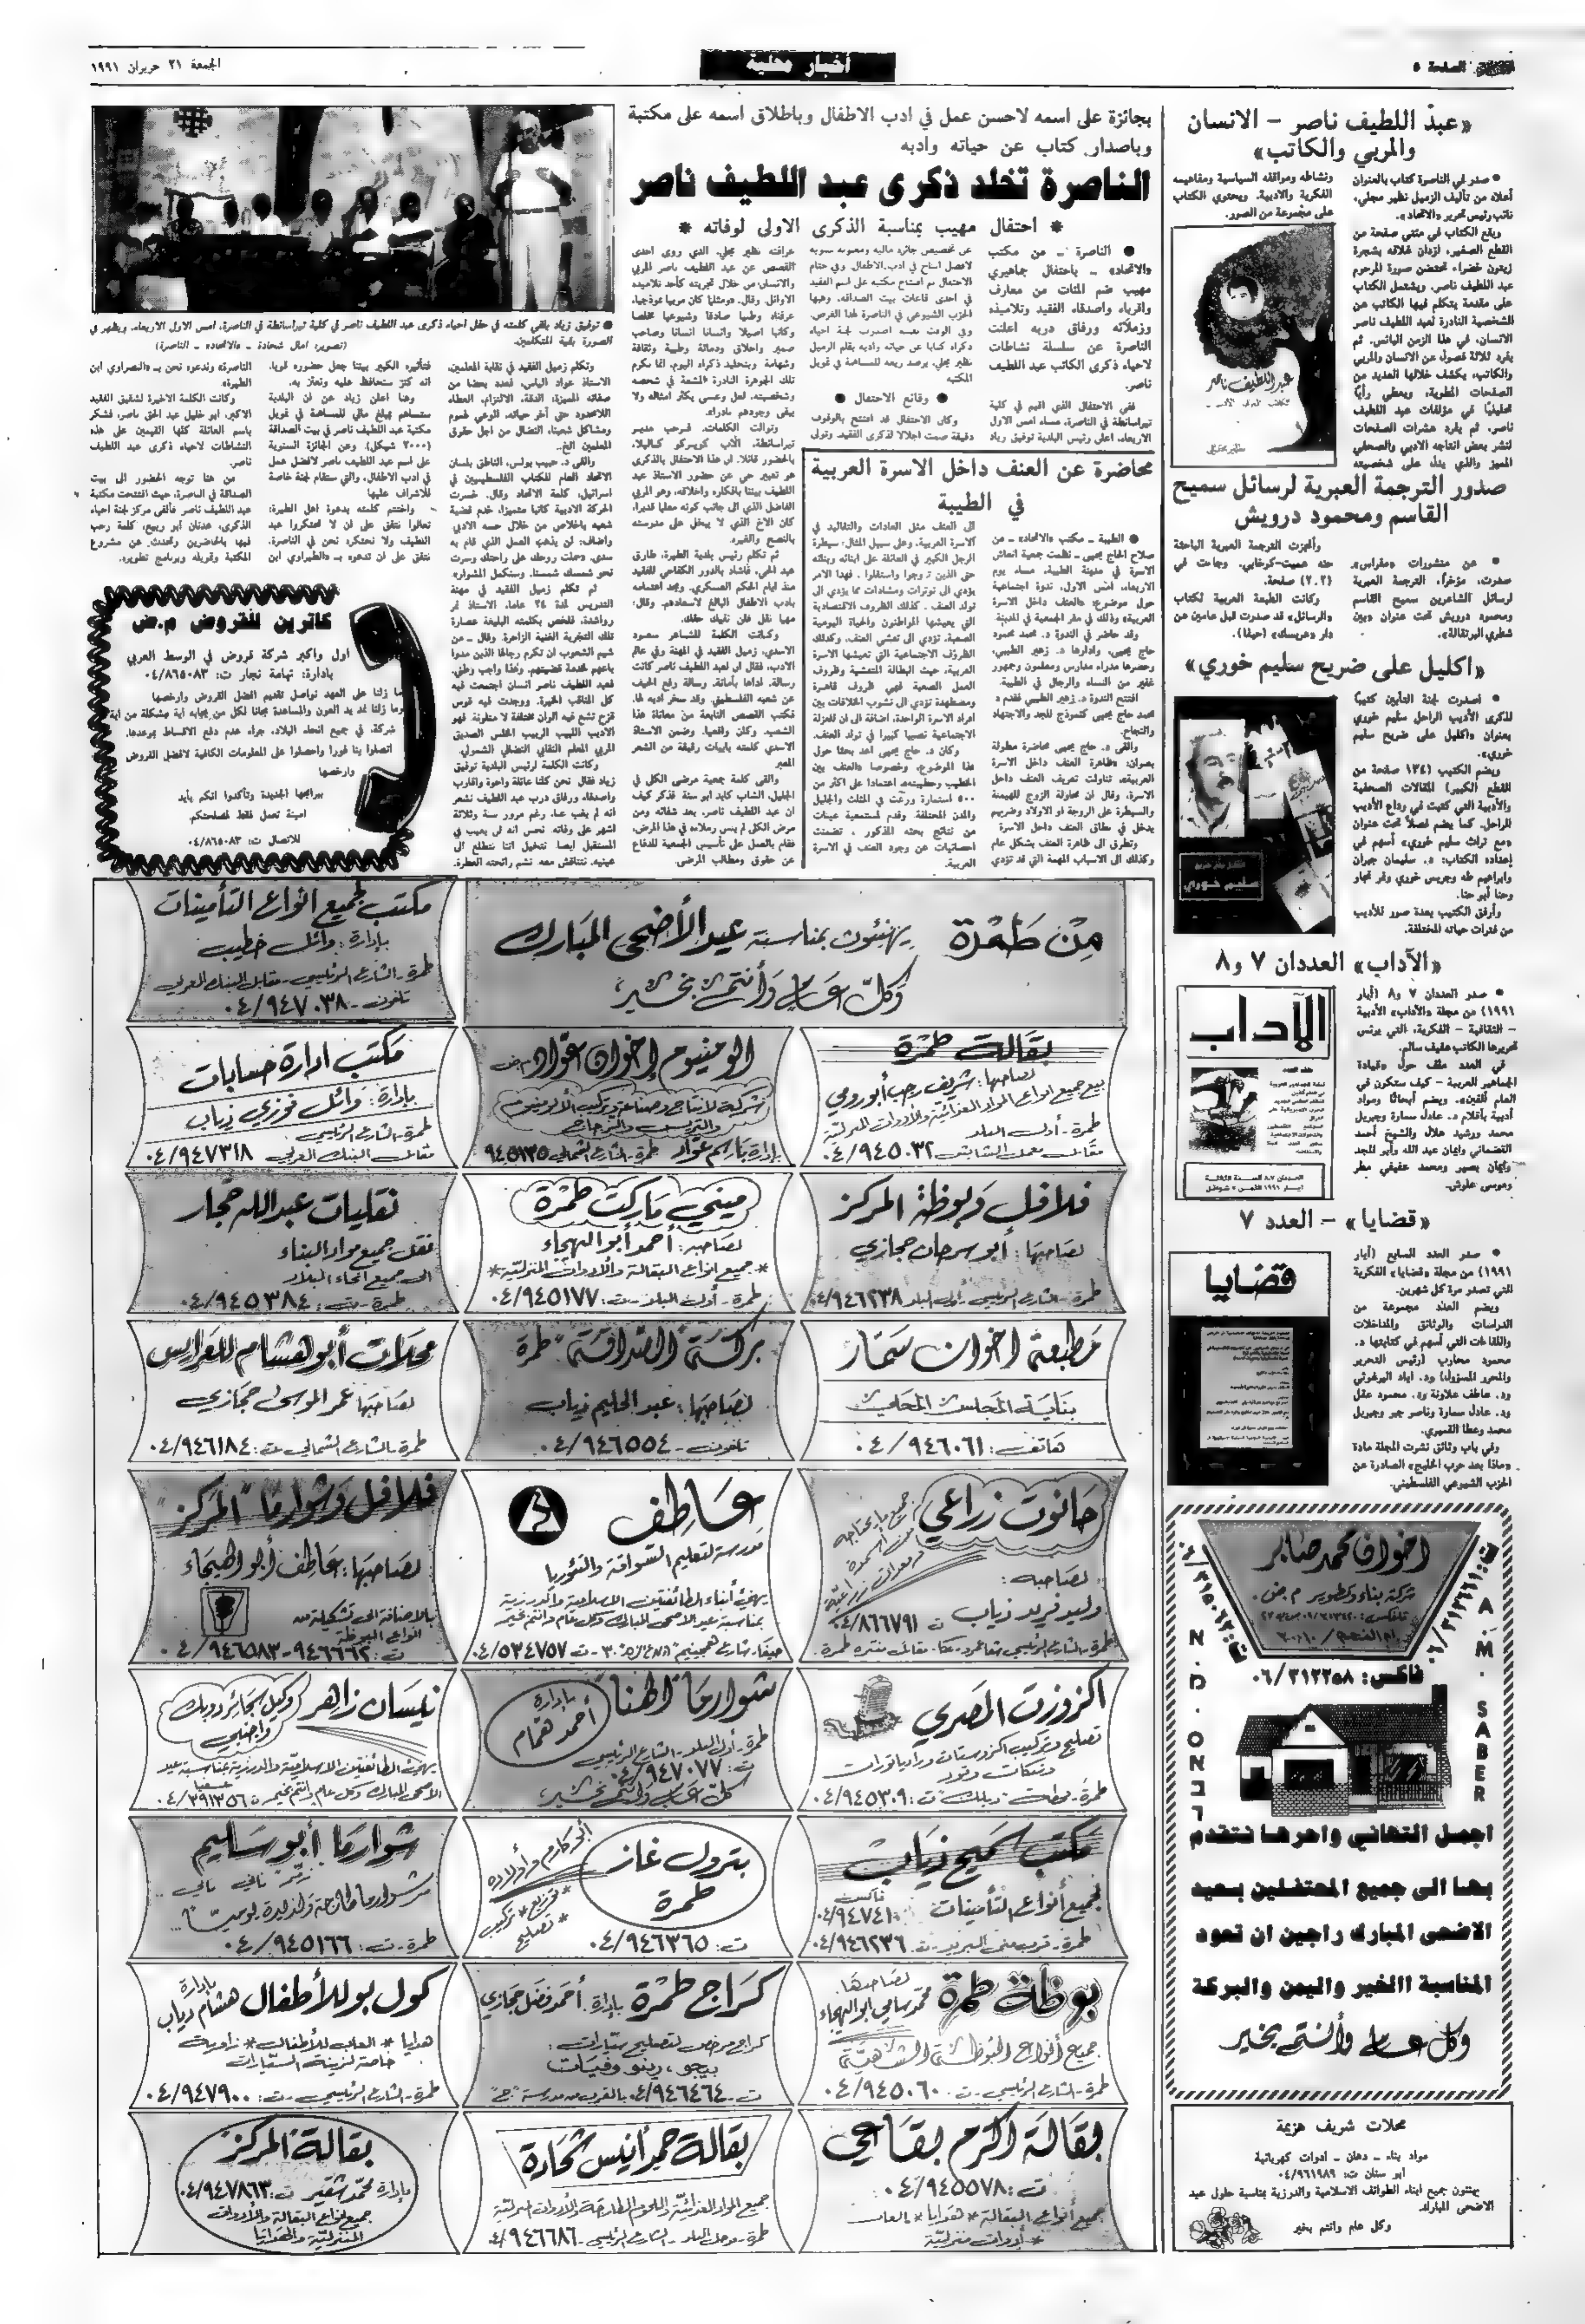 الصفحة ٥
أخبار محلية
الجمعة ٢١ حزيران ١٩٩١
«عبد اللطيف ناصر - الانسان
والمربي والكاتب»
• صدر في الناصرة كتاب بالعنوان
أعلاه من تأليف الزميل نظير مجلي،
نائب رئيس تحرير «الاتحاد».
ويقع الكتاب في مئتي صفحة من
القطع الصغير، ازدان غلافه بشجرة
زيتون خضراء تحتضن صورة المرحوم
عبد اللطيف ناصر. ويشتمل الكتاب
على مقدمة يتكلم فيها الكاتب عن
الشخصية النادرة لعبد اللطيف ناصر
الانسان، في هذا الزمن البائس. ثم
يفرد ثلاثة فصول عن الانسان والمربي
والكاتب، يكشف خلالها العديد من
الصفحات المطوية، ويعطي رأيًا
تحليليًا في مؤلفات عبد اللطيف
ناصر. ثم يفرد عشرات الصفحات
لنشر بعض انتاجه الادبي والصحفي
المميز والذي يدل على شخصيته
ونشاطه ومواقفه السياسية ومفاهيمه
الفكرية والادبية. ويحتوي الكتاب
على مجموعة من الصور.
صدور الترجمة العبرية لرسائل سميح
القاسم ومحمود درويش
• عن منشورات «مفراس»
صدرت، مؤخرًا، الترجمة العبرية
لرسائل الشاعرين سميح القاسم
ومحمود درويش تحت عنوان «بين
شطري البرتقالة».
وأنجزت الترجمة العبرية الباحثة
حنه عميت-كوخابي. وجاءت في
(٢٠٢) صفحة.
وكانت الطبعة العربية لكتاب
«الرسائل» قد صدرت قبل عامين عن
دار «عربسك» (حيفا).
«اكليل على ضريح سليم خوري»
• أصدرت لجنة التأبين كتيبًا
لذكرى الأديب الراحل سليم خوري
بعنوان «اكليل على ضريح سليم
خوري».
ويضم الكتيب (١٣٤ صفحة من
القطع الكبير) المقالات الصحفية
والأدبية التي كتبت في وداع الأديب
الراحل. كما يضم فصلًا تحت عنوان
«مع تراث سليم خوري» أسهم في
إعداده الكتاب: د. سليمان جبران
وابراهيم طه وجريس خوري ونمر نجار
وحنا أبو حنا.
وأرفق الكتيب بعدة صور للأديب
من فترات حياته المختلفة.
«الآداب» العددان ٧ و٨
• صدر العددان ٧ و٨ (أيار
١٩٩١) من مجلة «الآداب» الأدبية
- الثقافية - الفكرية، التي يرئس
تحريرها الكاتب عفيف سالم.
في العدد ملف حول «قيادة
الجماهير العربية - كيف ستكون في
العام ألفين». ويضم أبحاثًا ومواد
أدبية بأقلام د. عادل سمارة وجبريل
محمد ورشيد هلال والشيخ أحمد
القضماني وايمان عبد الله وأبو المجد
وايمان بصير ومحمد حفيفي مطر
وموسى علوش.
الآداب
«قضايا» - العدد ٧
• صدر العدد السابع (أيار
١٩٩١) من مجلة «قضايا» الفكرية
التي تصدر مرة كل شهرين.
ويضم العدد مجموعة من
الدراسات والوثائق والمداخلات
واللقاءات التي أسهم في كتابتها د.
محمود محارب (رئيس التحرير
والمحرر المسؤول) ود. اياد البرغوثي
ود. عاطف علاونة ود. محمود عقل
ود. عادل سمارة وناصر جبر وجبريل
محمد وعطا القميري.
وفي باب وثائق نشرت المجلة مادة
«ماذا بعد حرب الخليج» الصادرة عن
الحزب الشيوعي الفلسطيني.
قضايا
اخوان محمد صابر
شركة بناء وتطوير م.ض.
فاكس: ٠٦/٣١٢٢٥٨
A.M. SABER
اجمل التهاني واحرها نتقدم
بها الى جميع المحتفلين بعيد
الاضحى المبارك راجين ان تعود
المناسبة االخير واليمن والبركة
وكل عام وأنتم بخير
محلات شريف هزيمة
مواد بناء - دهان - ادوات كهربائية
ابو سنان ت: ٠٤/٩٦١٩٨٩
يهنئون جميع ابناء الطوائف الاسلامية والدرزية بمناسبة حلول عيد
الاضحى المبارك
وكل عام وانتم بخير
بجائزة على اسمه لاحسن عمل في ادب الاطفال وباطلاق اسمه على مكتبة
وباصدار كتاب عن حياته وادبه
الناصرة تخلد ذكرى عبد اللطيف ناصر
* احتفال مهيب بمناسبة الذكرى الاولى لوفاته *
• الناصرة - من مكتب
«الاتحاد» - باحتفال جماهيري
مهيب ضم المئات من معارف
وأقرباء واصدقاء الفقيد وتلاميذه
وزملائه ورفاق دربه اعلنت
الناصرة عن سلسلة نشاطات
لاحياء ذكرى الكاتب عبد اللطيف
ناصر.
ففي الاحتفال الذي اقيم في كلية
تيراسانطة في الناصرة، مساء امس الاول
الاربعاء، اعلن رئيس البلدية توفيق زياد
عن تخصيص جائزة مالية ومعنوية سنوية
لافضل انتاج في ادب الاطفال. وفي ختام
الاحتفال تم افتتاح مكتبة على اسم الفقيد
في احدى قاعات بيت الصداقة، وهبها
الحزب الشيوعي في الناصرة لهذا الغرض.
وفي الوقت نفسه اصدرت لجنة احياء
ذكراه كتابا عن حياته وادبه بقلم الزميل
نظير مجلي، يرصد ريعه للمساهمة في تمويل
المكتبة
• وقائع الاحتفال •
وكان الاحتفال قد افتتح بالوقوف
دقيقة صمت اجلالا لذكرى الفقيد. وتولى
عرافته نظير مجلي، الذي روى احدى
القصص عن عبد اللطيف ناصر المربي
والانسان، من خلال تجربته كأحد تلاميذه
الاوائل. وقال: «ومثلما كان مربيا نموذجيا،
عرفناه وطنيا صادقا وشيوعيا مخلصا
وكاتبا اصيلا وانسانا انسانا وصاحب
ضمير واخلاق ودماثة وطيبة وثقافة
وشهامة وبتخليد ذكراه اليوم، انما نكرم
تلك الجوهرة النادرة المشعة في شخصه
وشخصيته، لعل وعسى يكثر امثاله ولا
يبقى وجودهم نادرا».
وتوالت الكلمات. فرحب مدير
تيراسانطة، الأب كويركو كاليلا،
بالحضور قائلا: ان هذا الاحتفال بالذكرى
هو تعبير حي عن حضور الاستاذ عبد
اللطيف بيننا بافكاره واخلاقه، وهو المربي
الفاضل الذي الى جانب كونه معلما قديرا،
كان الاخ الذي لا يبخل على مدرسته
بالنصح والغيرة.
ثم تكلم رئيس بلدية الطيرة، طارق
عبد الحي، فاشاد بالدور الكفاحي للفقيد
منذ ايام الحكم العسكري. ومجد اهتمامه
بادب الاطفال البالغ لاسعادهم. وقال:
مهما نقل فان نفيك حقك.
وكانت الكلمة للشاعر سعود
الاسدي، زميل الفقيد في المهنة وفي عالم
الادب، فقال ان لعبد اللطيف ناصر كانت
رسالة، اداها بأمانة، رسالة رفع الحيف
عن شعبه الفلسطيني. وقد سخر أدبه لها.
فكتب القصص النابعة من معاناة هذا
الشعب وكان واقعيا. وضمن الاستاذ
الاسدي كلمته بابيات رقيقة من الشعر
المعبر
والقى كلمة جمعية مرضى الكلى في
الجليل، الشاب كايد ابو سنة فذكر كيف
ان عبد اللطيف ناصر، بعد شفائه ومن
مرض الكلى لم ينس زملاءه في هذا المرض،
فقام بالعمل على تأسيس الجمعية للدفاع
عن حقوق ومطالب المرضى.
• توفيق زياد يلقي كلمته في حفل احياء ذكرى عبد اللطيف ناصر في كلية تيراسانطة في الناصرة، امس الاول الاربعاء. ويظهر في
الصورة بقية المتكلمين.
(تصوير: امال شحادة - «الاتحاد» - الناصرة)
وتكلم زميل الفقيد في نقابة المعلمين،
الاستاذ عواد الياس، فعدد بعضا من
صفاته المميزة: الدقة، الالتزام، العطاء
اللامحدود حتى آخر حياته، الوعي لهموم
ومشاكل شعبنا، النضال من اجل حقوق
المعلمين الخ..
والقى د. حبيب بولس، الناطق بلسان
الاتحاد العام للكتاب الفلسطينيين في
اسرائيل، كلمة الاتحاد وقال: خسرت
الحركة الادبية كاتبا متميزا، خدم قضية
شعبه باخلاص من خلال حسه الادبي
واضاف: لن يذهب العمل الذي قام به
سدى. «حملت روحك على راحتك وسرت
نحو شمسك شمسنا، وسنكمل المشوار».
ثم تكلم زميل الفقيد في مهنة
التدريس لمدة ٢٤ عاما، الاستاذ نمر
رواشدة، فلخص بكلمته البليغة عصارة
تلك التجربة الغنية الزاخرة. وقال - من
شيم الشعوب ان تكرم رجالها الذين مدوا
باعهم لخدمة قضيتهم، وهذا واجب وطني.
فعبد اللطيف ناصر انسان اجتمعت فيه
كل المناقب الخيرة، ووجدت فيه قوس
قزح تشع فيه الوان مختلفة لا متلونة. فهو
الاديب اللبيب الربيب المخلص الصديق
المربي المعلم النقابي النضالي الشمولي.
وكانت الكلمة لرئيس البلدية توفيق
زياد فقال: نحن كلنا عائلة واخوة واقارب
واصدقاء ورفاق درب عبد اللطيف نشعر
انه لم يغب عنا، رغم مرور سنة وثلاثة
اشهر على وفاته. نحس انه لن يغيب في
المستقبل ايضا. نتخيل اننا نتطلع الى
عينيه. نتناقش معه. نشم رائحته العطرة.
فتأثيره الكبير بيننا جعل حضوره قويا.
انه كنز سنحافظ عليه ونعتز به.
وهنا اعلن زياد عن ان البلدية
ستساهم بمبلغ مالي للمساهمة في تمويل
مكتبة عبد اللطيف ناصر في بيت الصداقة
(٣٠٠٠ شيكل). وعن الجائزة السنوية
على اسم عبد اللطيف ناصر لافضل عمل
في ادب الاطفال، والتي ستقام لجنة خاصة
للاشراف عليها
واختتم كلمته بدعوة اهل الطيرة:
تعالوا نتفق على ان لا تحتكروا عبد
اللطيف ولا نحتكره نحن في الناصرة.
نتفق على ان تدعوه بـ «الطيراوي ابن
الناصرة» وندعوه نحن بـ «النصراوي ابن
الطيرة».
وكانت الكلمة الاخيرة لشقيق الفقيد
الاكبر، ابو خليل عبد الحق ناصر، فشكر
باسم العائلة كلها القيمين على هذه
النشاطات لاحياء ذكرى عبد اللطيف
ناصر.
من هنا توجه الحضور الى بيت
الصداقة في الناصرة، حيث افتتحت مكتبة
عبد اللطيف ناصر فألقى مركز لجنة احياء
الذكرى، عدنان أبو ربيع، كلمة رحب
فيها بالحاضرين وتحدث عن مشروع
المكتبة وتمويله وبرنامج تطويره.
محاضرة عن العنف داخل الاسرة العربية
في الطيبة
الطيبة - مكتب «الاتحاد» - من
صلاح الحاج يحيى - نظمت جمعية انعاش
الاسرة في مدينة الطيبة، مساء يوم
الاربعاء، امس الاول، ندوة اجتماعية
حول موضوع: «العنف داخل الاسرة
العربية» وذلك في مقر الجمعية في المدينة.
وقد حاضر في الندوة د. محمد محمود
حاج يحيى، وادارها د. زهير الطيبي،
وحضرها مدراء مدارس ومعلمون وجمهور
غفير من النساء والرجال في الطيبة.
افتتح الندوة د. زهير الطيبي فقدم د.
محمد حاج يحيى كنموذج للجد والاجتهاد
والنجاح.
والقى د. حاج يحيى محاضرة مطولة
بعنوان: «ظاهرة العنف داخل الاسرة
العربية»، تناولت تعريف العنف داخل
الاسرة، وقال ان محاولة الزوج للهيمنة
والسيطرة على الزوجة او الاولاد وضربهم
يدخل في نطاق العنف داخل الاسرة
وتطرق الى ظاهرة العنف بشكل عام
وكذلك الى الاسباب المهمة التي قد تؤدي
الى العنف مثل العادات والتقاليد في
الاسرة العربية. وعلى سبيل المثال: سيطرة
الرجل الكبير في العائلة على ابنائه وبناته
حتى الذين تزوجوا واستقلوا. فهذا الامر
يؤدي الى توترات ومشادات مما يؤدي الى
تولد العنف. كذلك الظروف الاقتصادية
التي يعيشها المواطنون والحياة اليومية
الصعبة، تؤدي الى تفشي العنف، وكذلك
الظروف الاجتماعية التي تعيشها الاسرة
العربية، حيث البطالة المتفشية وظروف
العمل الصعبة فهي ظروف قاهرة
ومضطهدة تؤدي الى نشوب الخلافات بين
افراد الاسرة الواحدة، اضافة الى ان للعزلة
الاجتماعية نصيبا كبيرا في تولد العنف.
وكان د. حاج يحيى اعد بحثا حول
هذا الموضوع، وخصوصا «العنف بين
الخطيب وخطيبته» اعتمادا على اكثر من
٥٠٠ استمارة وزعت في المثلث والجليل
والمدن المختلطة. وقدم لمستمعيه عينات
من نتائج بحثه المذكور، تضمنت
احصائيات عن وجود العنف في الاسرة
العربية.
كاترين للقروض م.ض
أول واكبر شركة قروض في الوسط العربي
بادارة: تهامة نجار ت: ٠٤/٨٦٥٠٨٣
ما زلنا على العهد نواصل تقديم افضل القروض وارخصها
وما زلنا نمد يد العون والمساعدة مجانا لكل من يجابه اية مشكلة من اية
شركة، في جميع انحاء البلاد، جراء عدم دفع الاقساط بموعدها.
اتصلوا بنا فورا واحصلوا على المعلومات الكافية لافضل القروض
وارخصها
ببرامجها الجديدة وتأكدوا انكم بأيد
امينة تعمل فقط لمصلحتكم.
للاتصال ت: ٠٤/٨٦٥٠٨٣
مِن طَمْرة يهنئون بمناسبة عيد الأضحى المبارك
وكل عام وأنتم بخير
مكتب لجميع انواع التأمينات
بإدارة: وائل خطيب
طمرة - الشارع الرئيسي - مقابل البنك العربي
تلفون - ٠٤/٩٤٧٠٣٨
بقالة طمرة
لصاحبها: شريف رجب أبو رومي
بيع جميع انواع المواد الغذائية والأدوات المنزلية
طمرة - أول البلد
٠٤/٩٤٥٠٣٢
الومنيوم إخوان عوّاد م.ض
شركة لانتاج وصناعة وتركيب الألومنيوم
بإدارة باسم عوّاد طمرة - الشارع الشمالي ٩٤٥١٣٥
مكتب ادارة حسابات
بإدارة: وائل فوزي ذياب
طمرة - الشارع الرئيسي
مقابل البنك العربي ٠٤/٩٤٧٣١٨
فلافل وبوظة المركز
لصاحبها: أبو سرحان حجازي
طمرة - الشارع الرئيسي - أول البلد ٠٤/٩٤٦٢٣٨
ميني ماركت طمرة
لصاحبه: أحمد أبو الهيجاء
* جميع انواع البقالة والأدوات المنزلية *
طمرة - أول البلد - ت: ٠٤/٩٤٥١٧٧
نقليات عبد الله حجار
نقل جميع مواد البناء
الى جميع انحاء البلاد
طمرة - ت: ٠٤/٩٤٥٣٨٤
مطبعة اخوان سمار
بناية المجلس المحلي
هاتف: ٠٤/٩٤٦٠٦١
بركة "الصداقة" طمرة
لصاحبها: عبد الحليم ذياب
تلفون - ٠٤/٩٤٦٥٥٤
محلات أبو هشام للعرايس
لصاحبها عمر الموسى حجازي
طمرة - الشارع الشمالي - ت: ٠٤/٩٤٦١٨٤
حانوت زراعي
لصاحبه:
وليد فريد ذياب ت ٠٤/٨٦٦٧٩١
عاطف
مدرسة لتعليم السواقة والتؤوريا
يهنئ أبناء الطائفتين الاسلامية والدرزية
بمناسبة عيد الاضحى المبارك وكل عام وانتم بخير
ت ٠٤/٥٣٤٧٥٧
فلافل وشوارما "المركز"
لصاحبها: عاطف أبو الهيجاء
بالاضافة الى تشكيلة من
انواع البوظة
ت: ٩٤٦٦٦٢ - ٠٤/٩٤٦٥٨٣
اكزوزت المصري
تصليح وتركيب اكزوستات وراديوتورات
وتنكات وقود
٠٤/٩٤٥٣٠٩
شوارما "الهنا"
بإدارة أحمد همام
طمرة - أول البلد - الشارع الرئيسي
ت: ٠٤/٩٤٧٠٧٧
كل عام وانتم بخير
نيسان زاهر
يهنئ الطائفتين الاسلامية والدرزية بمناسبة عيد
الاضحى المبارك وكل عام وانتم بخير ت: ٠٤/٣٩١٣٥٦
مكتب سميح ذياب
لجميع أنواع التأمينات
٠٤/٩٤٦٢٣٦
بترول غاز
طمرة
ابو كارم وأولاده
* توزيع * تركيب
* تصليح
ت: ٠٤/٩٤٦٣٦٥
شوارما أبو سليم
طمرة - ت: ٠٤/٩٤٥١٦٦
بوظة طمرة
لصاحبها
محمد سامي ابو الهيجاء
جميع أنواع البوظة الشهية
طمرة - الشارع الرئيسي - ت: ٠٤/٩٤٥٠٦٠
كراج طمرة بإدارة: أحمد فضل حجازي
كراج مرخص لتصليح سيارات:
بيجو، رينو وفيات
ت - ٠٤/٩٤٦٤٦٤ بالقرب من مدرسة "ج"
كول بو للأطفال
بإدارة هشام دياب
هدايا * العاب للأطفال * زاوية
خاصة لزينة السيارات
طمرة - الشارع الرئيسي - ت: ٠٤/٩٤٧٩٠٠
بقالة اكرم بقاعي
ت: ٠٤/٩٤٥٥٧٨
جميع أنواع البقالة * هدايا * العاب
* أدوات منزلية
بقالة حمد أنيس شحادة
جميع المواد الغذائية واللحوم الطازجة والأدوات المنزلية
الشارع الرئيسي - ٠٤/٩٤٦٦٨٦
بقالة المركز
بإدارة محمد شقير ت: ٠٤/٩٤٧٨٦٣
جميع انواع البقالة والأدوات
المنزلية والهدايا